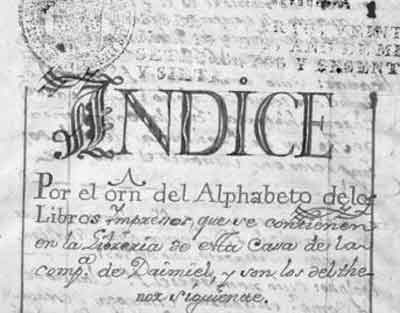 1
Y SIETE
Y SESENT
INDICE
Por el orñ del Alphabeto delos
Libros Impressos, que se contienen
en la Libreria de esta Casa de la
comp.ª de Daimiel, y son los del the-
nor siguiente.